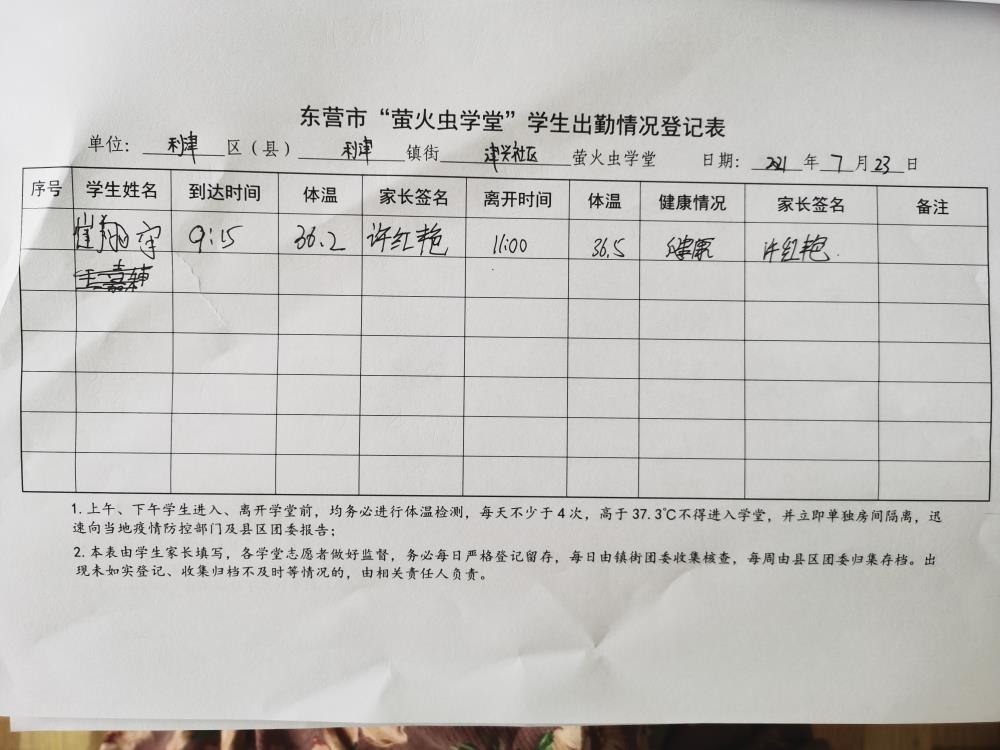 东营市“萤火虫学堂”学生出勤情况登记表
单位：利津区（县）利津镇街津兴社区萤火虫学堂 日期：2021年7月23日
序号 学生姓名 到达时间 体温 家长签名 离开时间 体温 健康情况 家长签名 备注
崔翔宇 9:15 36.2 许红艳 11:00 36.5 健康 许红艳
1.上午、下午学生进入、离开学堂前，均务必进行体温检测，每天不少于4次，高于37.3℃不得进入学堂，并立即单独房间隔离，迅
速向当地疫情防控部门及县区团委报告；
2.本表由学生家长填写，各学堂志愿者做好监督，务必每日严格登记留存，每日由镇街团委收集核查，每周由县区团委归集存档。出
现未如实登记、收集归档不及时等情况的，由相关责任人负责。